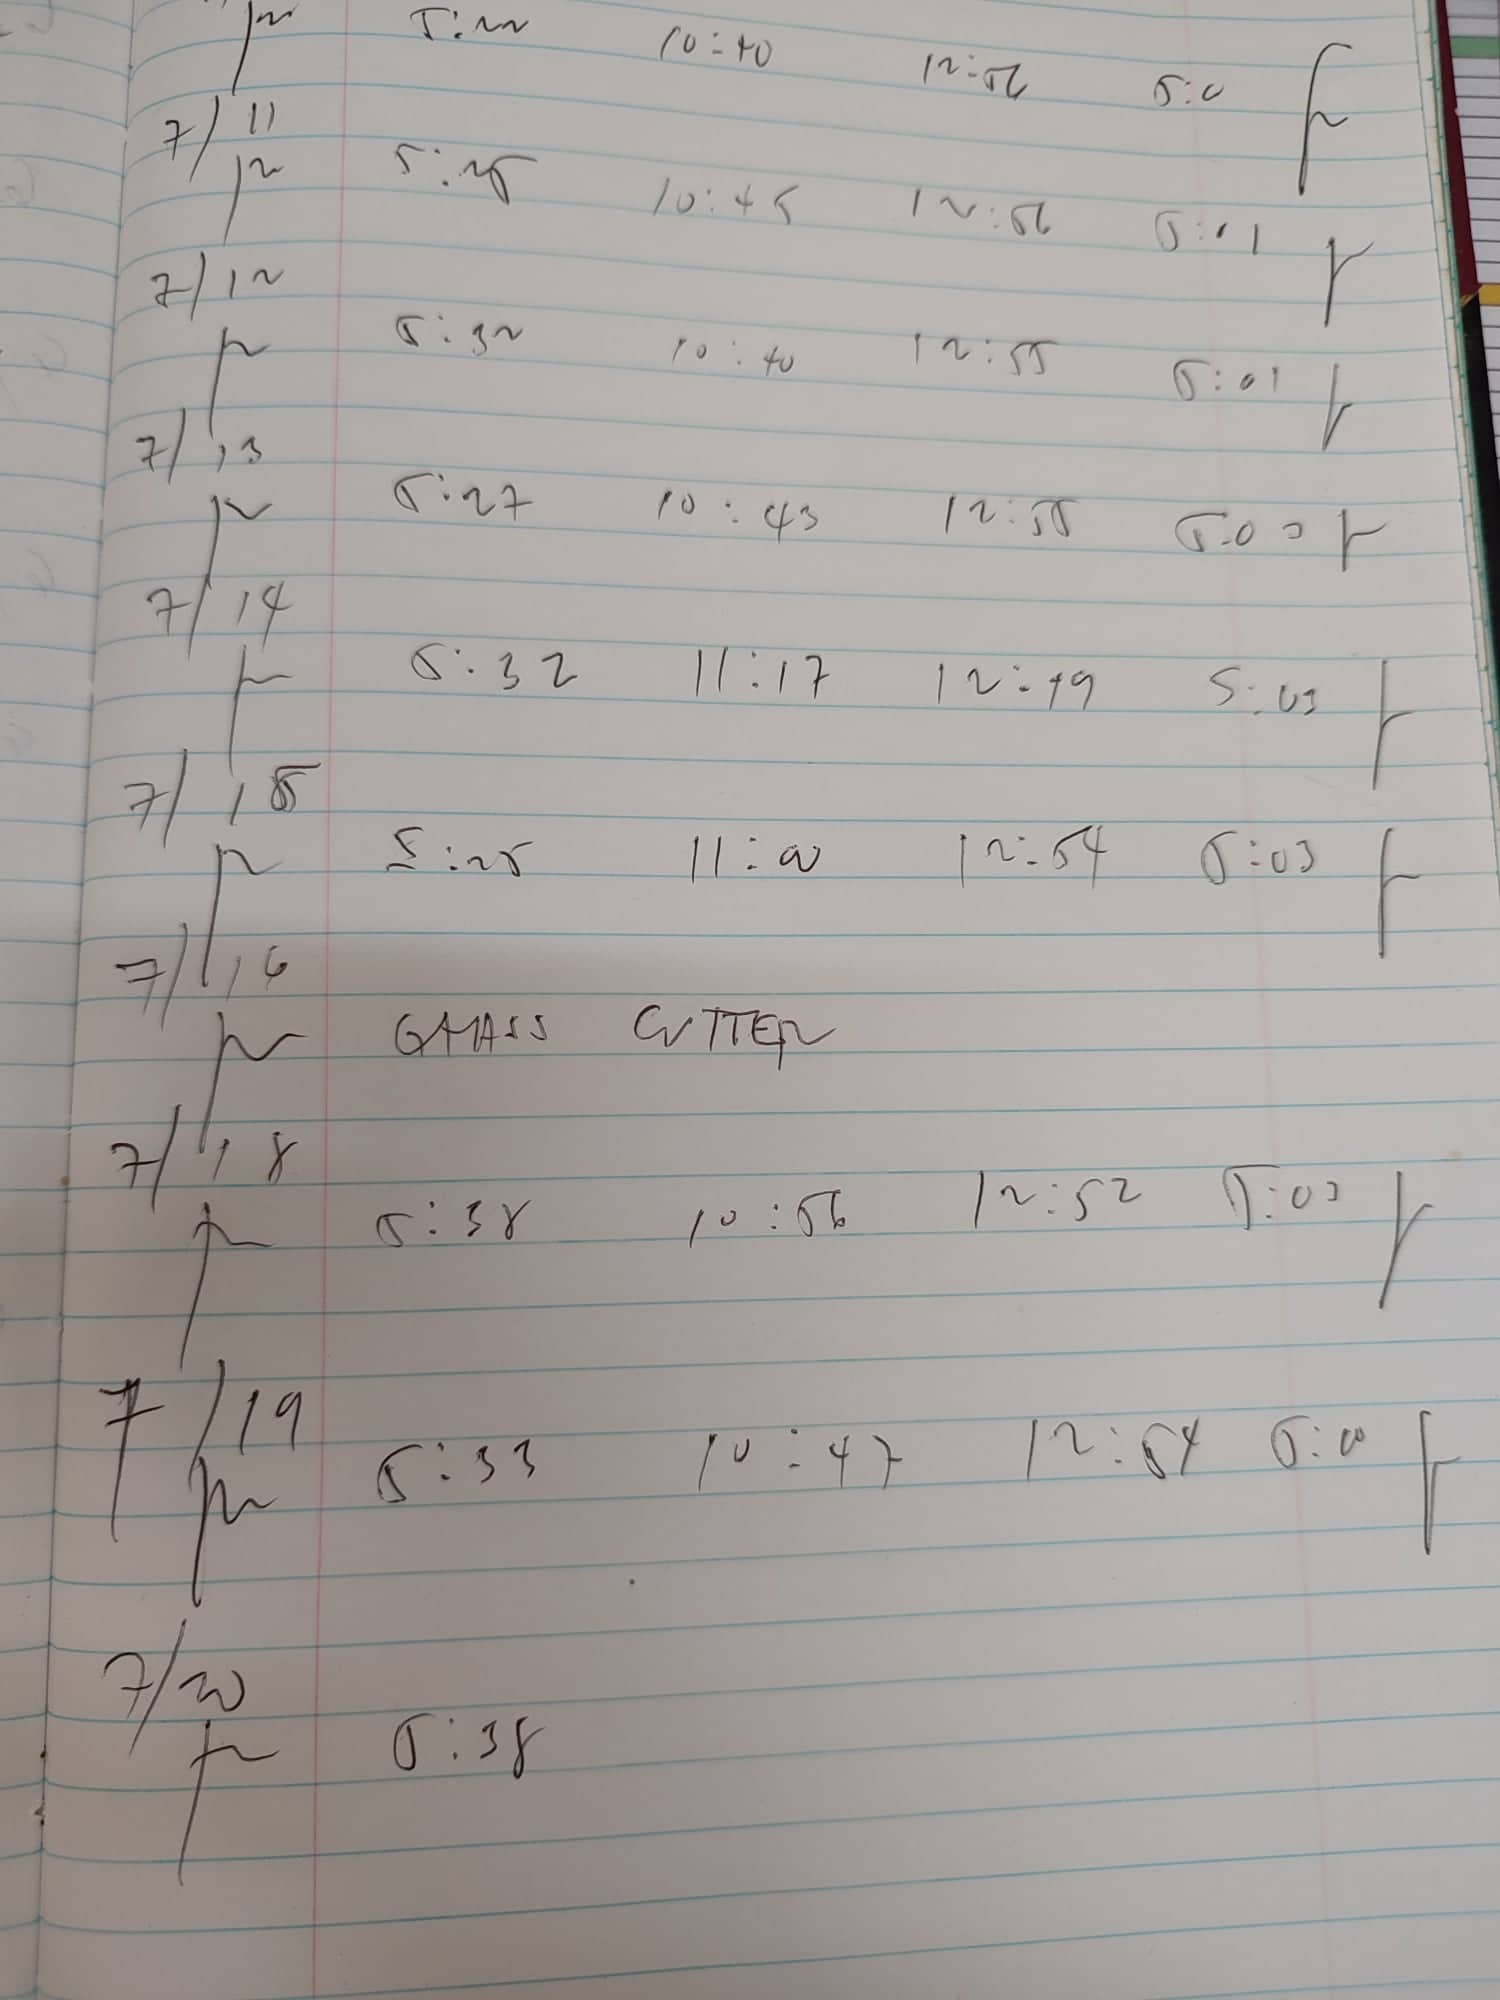 5:22 10:40 12:56 5:0
7/11
5:25 10:45 12:56 5:01
7/12
5:32 10:40 12:55 5:01
7/13
5:27 10:43 12:55 5:00
7/14
5:32 11:17 12:49 5:03
7/15
5:25 11:00 12:54 5:03
7/16
GRASS CUTTER
7/18
5:38 10:56 12:52 5:03
7/19
5:33 10:47 12:54 5:00
7/20
5:38